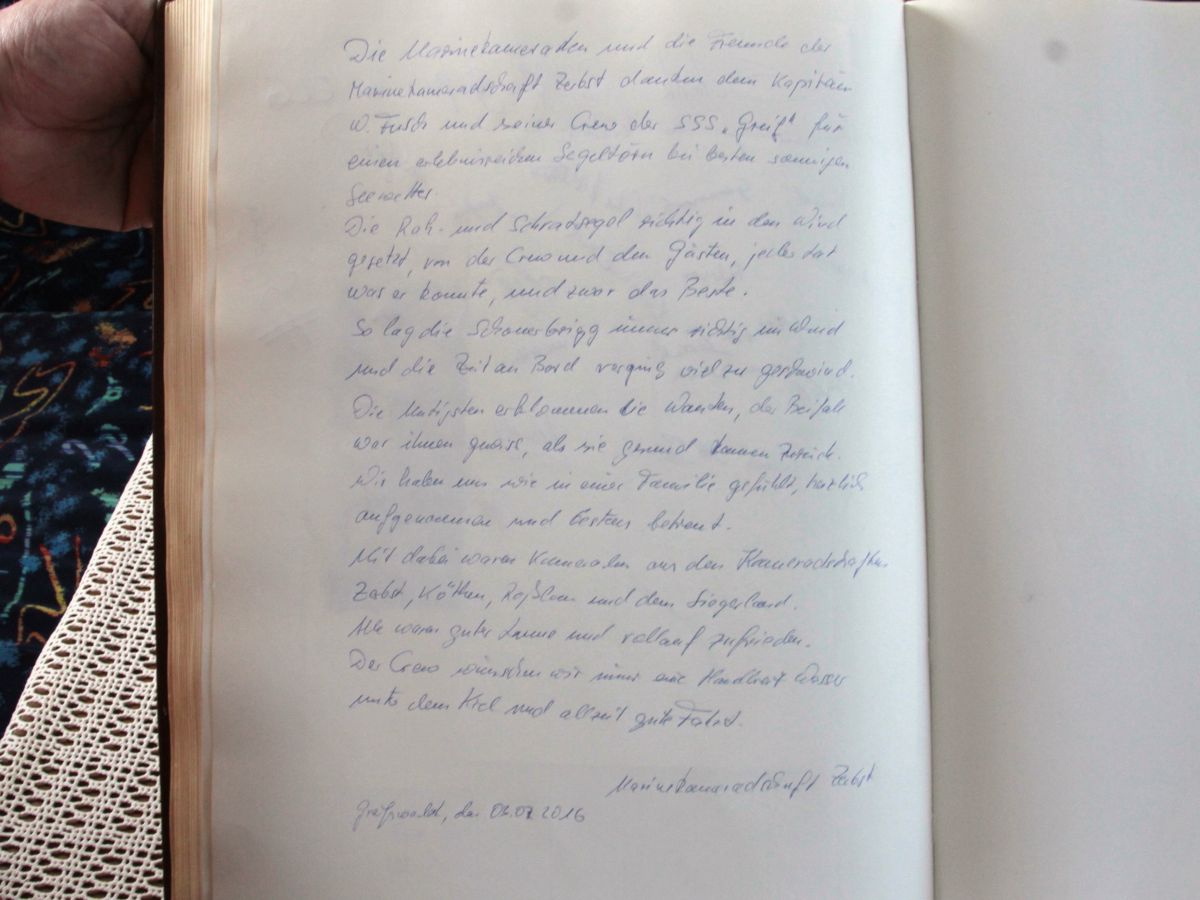 Die Marinekameraden und die Freunde der
Marinekameradschaft Zerbst danken dem Kapitän
W. Fusch und seiner Crew der SSS „Greif" für
einen erlebnisreichen Segeltörn bei besten sonnigen
Seewetter.
Die Rah- und Schratsegel richtig in den Wind
gesetzt, von der Crew und den Gästen, jeder tat
was er konnte, und zwar das Beste.
So lag die Schonerbrigg immer richtig im Wind
und die Zeit an Bord verging viel zu geschwind.
Die Mutigsten erklommen die Wanten, der Beifall
war ihnen gewiss, als sie gesund kamen zurück.
Wir haben uns wie in einer Familie gefühlt, herzlich
aufgenommen und bestens betreut.
Mit dabei waren Kameraden aus den Kameradschaften
Zerbst, Köthen, Roßlau und dem Siegerland.
Alle waren guter Laune und vollauf zufrieden.
Der Crew wünschen wir immer eine Handbreit Wasser
unter dem Kiel und allzeit gute Fahrt.
Marinekameradschaft Zerbst
Greifswald, den 2016